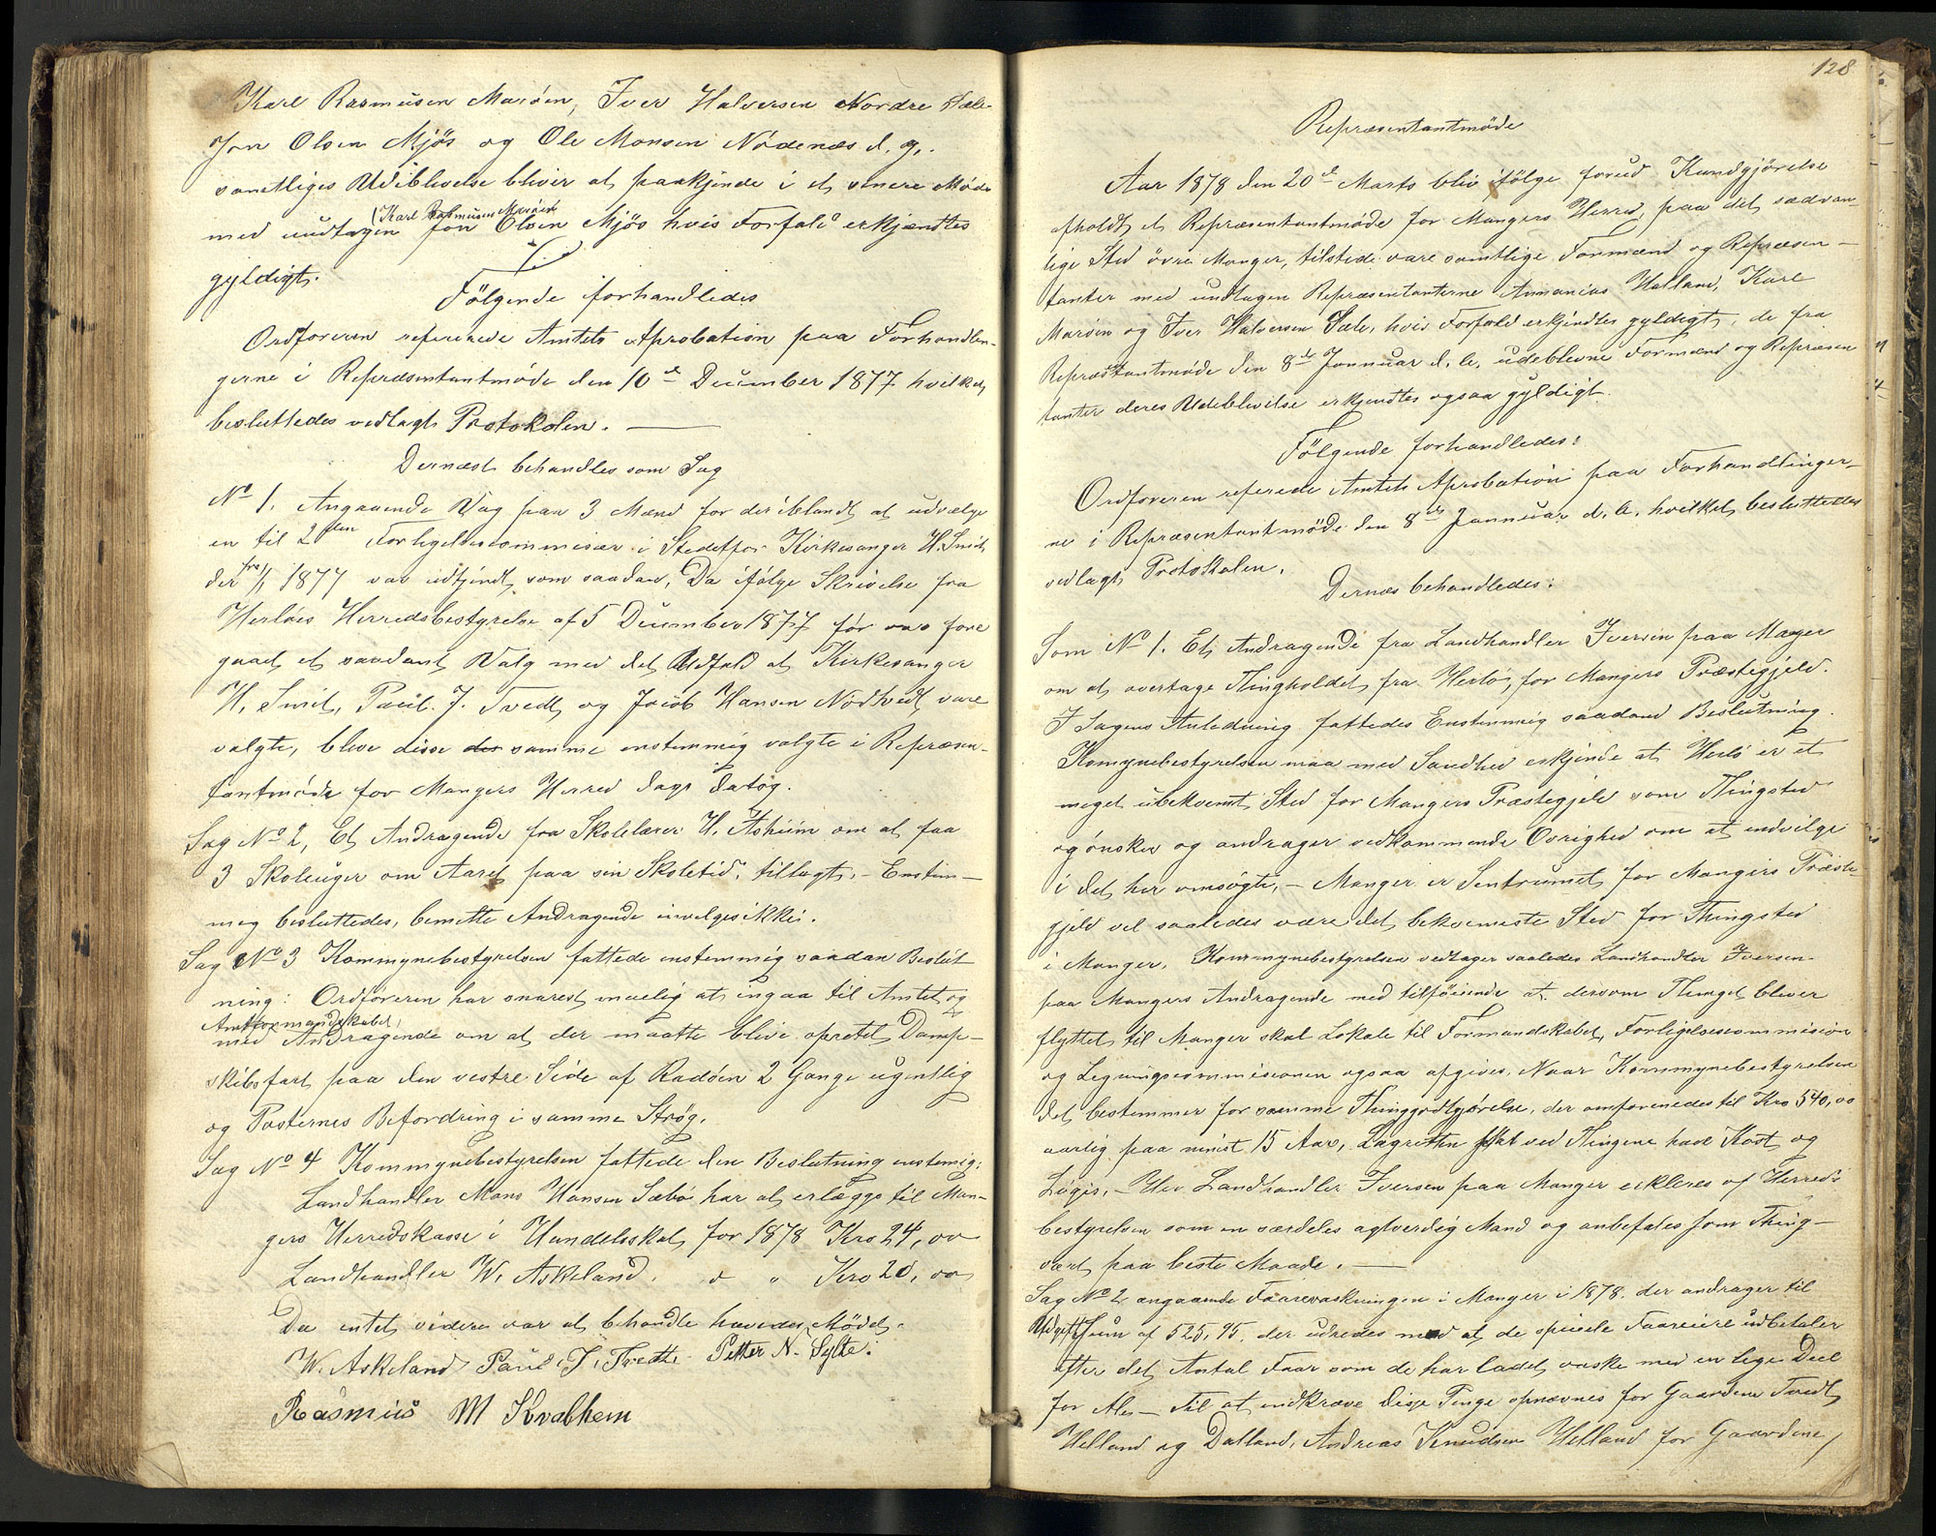 Karl Rasmusen Marøen, Iver Halversen Nordre Sæle
Jon Olsen Mjös og Ole Monsen Nödenæs d. g.
samtliges Udiblivelse bliver at paakjende i et senere Möde
(Karl Rasmusen Marøen
med undtagen Jon Olsen Mjös hvis Forfald erkjændtes
gyldigt.
Fölgende forhandledes
Ordføreren refererede Amtets Aprobation paa Forhandlin-
gerne i Repræsentantmöde den 10de December 1877 hvilket
besluttedes vedlagt Protokolen.
Dernæst behandles som Sag
No 1. Angaaende Valg paa 3 Mænd for deriblandt at udvælge
en til 2den Forligelsescommisær i Stedetfor Kirkesanger H. Smit
der fra 1/1 1877 var udtjent som saadan, Da ifølge Skrivelse fra
Herlöes Herredsbestyrelse af 5 December 1877 før var fore
gaaet et saadant Valg med det Udfald at Kirkesanger
H. Smit, Paul J. Tvedt og Jacob Hansen Nödtvedt vare
valgte, bleve disse samme enstemmig valgte i Repræsen-
tantmöde for Mangers Herred Dags Datog.
Sag No 2, Et Andragende fra Skolelærer H. Askeim om at faa
3 Skoleuger om Aaret paa sin Skoletid, tillagt. - Enstem-
mig besluttedes, bemelte Andragende invelges ikke.
Sag No 3 Kommynebestyrelsen fattede enstemmig saadan Beslut
ning: Ordföreren har snarest muelig at ingaa til Amtet og
Amtformandskabet,
med Andragende om at der maatte blive opretet Damp-
skibsfart paa den vestre Side af Radöen 2 Gange ugentlig
og Posternes Befordring i samme Strøg.
Sag No 4 Kommynebestyrelsen fattede den Beslutning enstemig:
Landhandler Mons Hansen Sæbø har at erlægge til Man-
gers Herredskasse i Handelsskat for 1878 Kro 24,00
Landhandler W. Askeland. d " Kro 20,00
Da intet videre var at behandle hævedes Mödet.
W. Askeland Paul J. Tvedte Petter N. Sylte.
Rasmus M Kvalhem
128
Repræsentantmöde
Aar 1878 den 20de Marts blev ifölge forud Kundgjörelse
afholdt et Repræsentantmöde for Mangers Herred, paa det sædvan-
lige Sted övre Manger, tilstede vare samtlige Formænd og Repræsen-
tanter med undtagen Repræsentanterne Annanias Halland, Karl
Marøen og Iver Halversen Sæle, hvis Forfald erkjendtes gyldigt, de fra
Repræstantmöde den 8de Jannuar d. A. udeblevne Formænd og Repræsen
tanter deres Udeblivelse erkjendtes ogsaa gyldigt.
Fölgende forhandledes:
Ordføreren referede Amtets Aprobation paa Forhandlinger-
ne i Repræsentantmöde den 8de Jannuar d. A. hvilket besluttedes
vedlagt Protokolen.
Dernæs behandledes:
Som No 1. Et Andragende fra Landhandler Iversen paa Manger
om at overtage Thingholdet fra Herlö, for Mangers Præstegjeld.
I Sagens Anledning fattedes Enstemmig saadand Beslutning.
Komynebestyrelsen maa med Sandhed erkjende at Herlö er et
meget ubekvemt Sted for Mangers Præstegjeld som Thingsted
og önsker og andrager vedkommende Övrighed om at indvilge
i det her omsögte, - Manger er Sentrumet for Mangers Præste
gjeld vel saaledes være det bekvemeste Sted for Thingsted
i Manger. Kommynebestyrelsen vedtager saaledes Landhandler Iversen
paa Mangers Andragende med tilföiende at dersom Thinget bliver
flyttet til Manger skal Lokale til Formandskabet, Forligelsescommision
og Ligningscommisionen ogsaa afgives. Naar Kommynebestyrelsen
det bestemmer for samme Thinggodtgjörelse, der omforenedes til Kro 540,00
aarlig paa minst 15 Aar, Lagretten skal ved Thingene have Kost og
Logis. - Hr Landhandler Iversen paa Manger erkleres af Herreds
bestyrelsen som en særdeles agtverdig Mand og anbefales som Thing-
vært paa beste Maade.
Sag No 2 angaaende Faarevaskningen i Manger i 1878. der andrager til
Udgift Sum af 525,95. der udredes med at de specielle Faareiere udbetaler
efter det Antal Faar som de har ladet vaske med en lige Deel
for Alle - Til at indkræve disse Penge opnævnes for Gaardene Tvedt
Helland og Dalland, Andreas Knudsen Helland for Gaardene